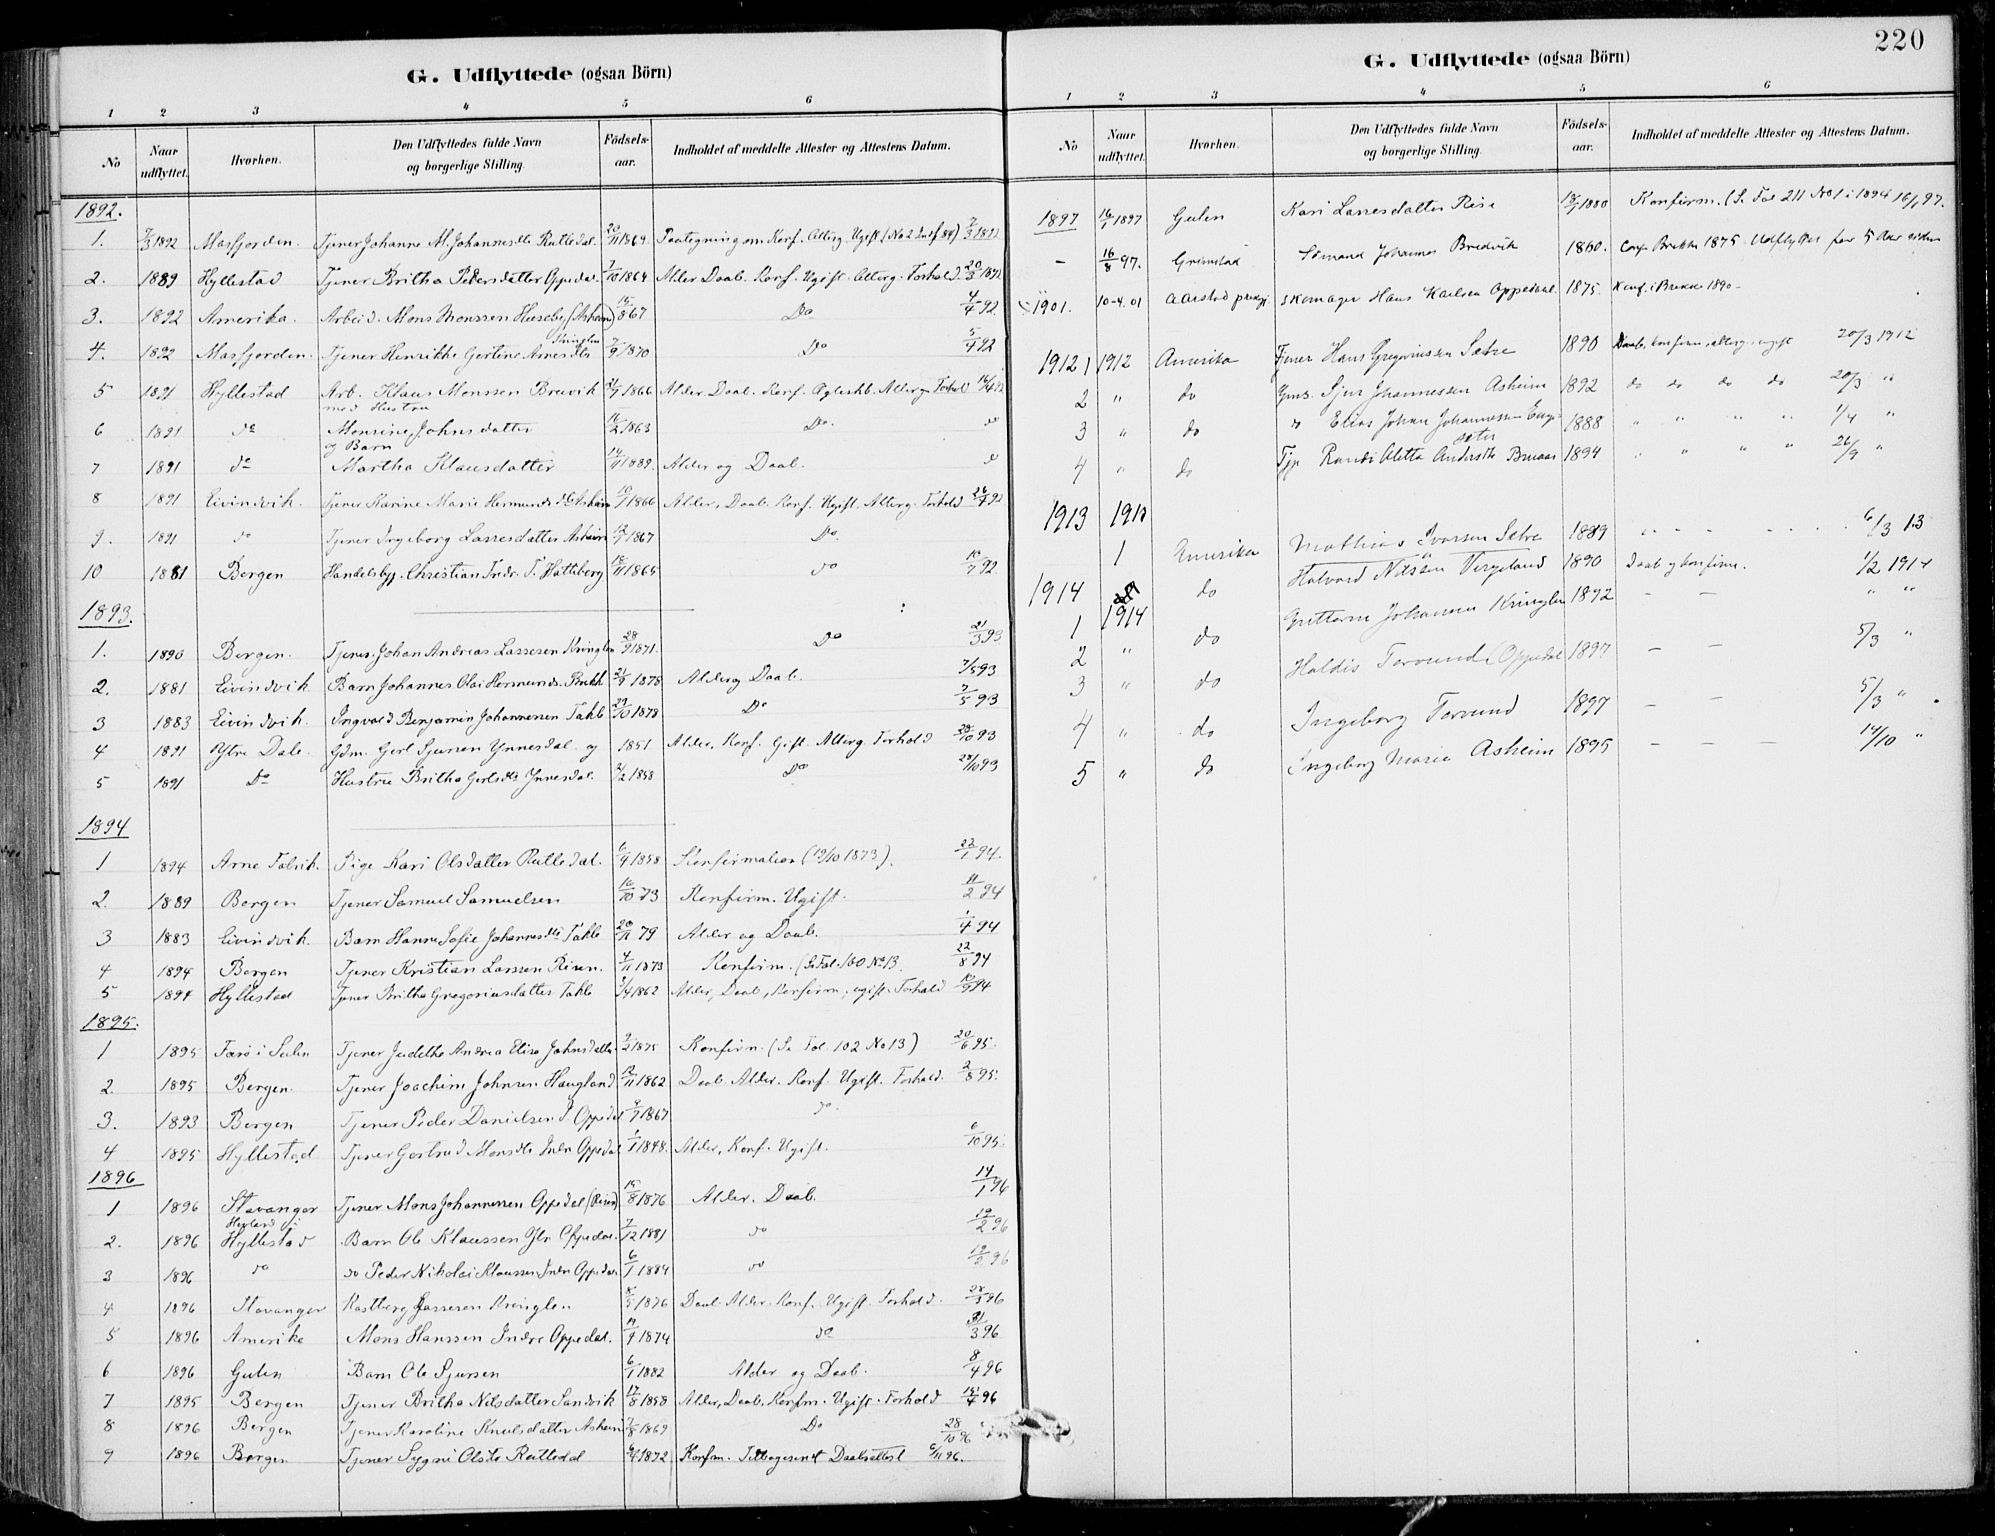 G. Udflyttede (ogsaa Börn)
1 2 3 4 5 6
No Naar udflyttet. Hvorhen. Den Udflyttedes fulde Navn og borgerlige Stilling. Födsels-aar. Indholdet af meddelte Attester og Attestens Datum.
1892.
1. 7/3 1892 Masfjorden. Tjener Johanne M. Johannesdtr Rutledal. 20/11 1869 Paategning om Konf. Alterg. Ugift (No 2 84) 7/3 1892
2. 1889 Hyllestad Tjener Britha Pedersdatter Oppedal. 7/10 1864 Alder Daab. Konf. Ugift. Alterg. Forhold. 20/3 1892
3. 1892 Amerika. Arbeid. Mons Monssen Huseby (Asheim) 15/8 67 Do 4/4 92
4. 1892 Masfjorden. Tjener Henrikke Gertine Arnesdtr Kringlen 7/9 1870 Do 5/4 92
5 1891 Hyllestad Arb. Klaus Monssen Brevik 21/9 1866 Alder. Daab. Konf. Alterg. Forhold
med Hustru
6 1891 do Monsine Johnsdatter 15/2 1863 Do. do
og Barn
7 1891 do Martha Klausdatter 14/11 1889. Alder og Daab. do
8 1891 Eivindvik. Tjener Karine Marie Hermundsdtr Asheim 10/1 1866 Alder, Daab. Konf. Ugift. Alterg. Forhold 26/4 92
9. 1891 do Tjener Ingeborg Lassesdatter Asheim 12/7 1867 Do
10 1881 Bergen Handelsbtj. Christian Indr. T. Hatleberg 18/11 1865 do 10/7 92.
1893.
1. 1890 Bergen. Tjener. Johan Andreas Lassesen Kringlen 28/9 1871. Do 21/3 93
2. 1881 Eivindvik Barn Johannes Olai Hermunds. Brekk 21/9 1878 Alder og Daab. 7/5 93
3 1883 Eivindvik. Ingvald Benjamin Johannessen Takle 29/10 1878 Do 7/5 93
4 1891 Ytre Dale. Gdm. Gerl Sjursen Ynnesdal. og 1851 Alder, Konf. Gift. Alterg. Forhold 28/10 93
5 1891 Do Hustru Britha Gerlsdtr Ynnesdal. 2/2 1858 Do 28/10 93
1894
1 1894 Arne Fabrik. Pige Kari Olsdatter Rutledal. 6/9 1858 Konfirmation (19/10 1873). 22/1 94.
2. 1889 Bergen Tjener Samuel Samuelsen 16/10 73 Konfirm. Ugift. 11/2 94
3 1883 Eivindvik. Barn Hanne Sofie Johannesdtr Takle 20/11 79 Alder og Daab. 1/4 94
4 1894 Bergen Tjener Kristian Lassen Risen. 4/11 1873 Konfirm. (Se Fol. 100 No 13. 22/8 94
5 1894 Hyllestad Tjener Britha Gregoriusdatter Takle 1862 Alder, Daab, Konfirm, ugift. Forhold 10/9 94
1895.
1 1895 Færø i Sulen Tjener Judithe Andrea Elise Johnsdatter 9/2 1875 Konfirm. (Se Fol. 102 No 13) 20/6 95.
2. 1895 Bergen. Tjener Joachim Johnsen Haugland 12/11 1862 Daab. Alder. Konf. Ugift. Forhold. 2/8 95.
3. 1893 Bergen Tjener Peder Danielsen I. Oppedal 2/7 1867 do
4 1895 Hyllestad Tjener Gertrud Monsdtr Indr Oppedal 1/1 1848. Alder, Konf. Ugift. 6/10 95.
1896
1 1896 Stavanger Tjener Mons Johannessen Oppedal (Risen) 15/8 1876 Alder. Daab. 14/1 96
2. 1896 Hyllestad Barn Ole Klaussen Oppedal. 7/12 1881 do 19/2 96
3 1896 do do Peder Nikolai Klaussen Indr Oppedal 6/1 1884 do 19/2 96
4 1896 Stavanger Rastberg Lassesen Kringlen 8/5 1876 Daab. Alder. Konf. Ugift. Forhold. 28/3 96
5 1896 Amerika Mons Hanssen Indre Oppedal. 19/9 1874 do 31/3 96
6 1896 Gulen Barn Ole Sjursen 6/1 1882 Alder og Daab. 8/4 96
7 1895 Bergen Tjener Britha Nilsdatter Sandvik 17/8 1858 Alder, Daab, Konfm. Ugift. Forhold 15/4 96
8 1896 Bergen Tjener Karoline Knutsdatter Asheim 7/8 1869 Do 28/10 96
9 1896 Bergen Tjener Sygni Olsdtr Rutledal 1872 Konfm. Tilbagesendt Daabsattest 6/11 96.
220
G. Udflyttede (ogsaa Börn)
1 2 3 4 5 6
No Naar udflyttet. Hvorhen. Den Udflyttedes fulde Navn og borgerlige Stilling. Födsels-aar. Indholdet af meddelte Attester og Attestens Datum.
1897 16/1 1897 Gulen Kari Lassesdatter Rise 18/7 1880 Konfirm. (Se Fol 211 No 1 i 1894 16/1 97.
– 16/8 97. Grimstad Sømand Johannes Bredvik 1860. Conf. Brekke 1875. Udflyttet for 5 Aar siden
1901. 10-4.01 Aarstad prestgj. skomager Hans Karlsen Oppedal 1875. Konf. i Brekke 1890 –
1912 1 1912 Amerika Tjener Hans Gregoriussen Sætre 1890 Daab, konfirm, alterg, ugift 20/3 1912
2 " do Gms. Sjur Johannessen Asheim 1892 do do do do 20/3 "
3 " do " Elias Johan Johannessen Enge-sæter 1888 " " " " 1/4 "
4 " do Tjp Randi Oletta Andersdtr Bruaas 1894 " " " " 26/9 "
1913 1913
1 Amerika Mathias Ivarsen Sætre 1889 6/3 13
1914 do Halvord Nilssen Vergeland 1890 Daab og konfirm. 1/2 1914
1 1914 do Guttorm Johannssen Kringlen 1892 – – " "
2 " do Haldis Torvund (Oppedal 1897 – – 5/3 "
3 " do
4 " do Ingeborg Torvund 1897 – – 5/3 "
5 " do Ingeborg Maria Asheim 1895 – – – 14/10 "